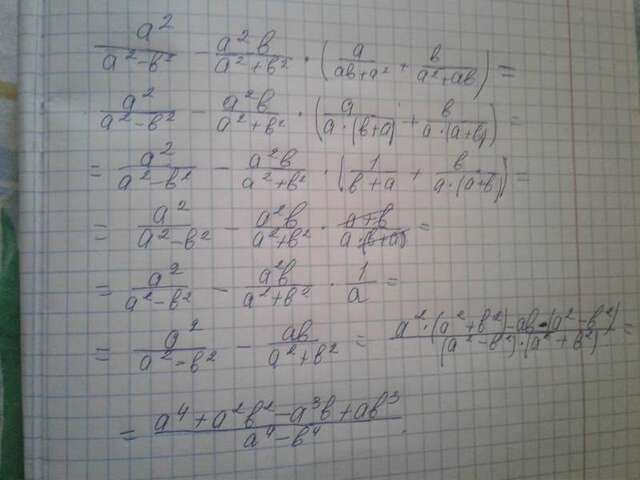 a²/(a²-b²) - a²b/(a²+b²) · (a/(ab+a²) + b/(a²+ab)) =
a²/(a²-b²) - a²b/(a²+b²) · (a/(a·(b+a)) + b/(a·(a+b))) =
= a²/(a²-b²) - a²b/(a²+b²) · (1/(b+a) + b/(a·(a+b))) =
= a²/(a²-b²) - a²b/(a²+b²) · (a+b)/(a·(b+a)) =
= a²/(a²-b²) - a²b/(a²+b²) · 1/a =
= a²/(a²-b²) - ab/(a²+b²) = (a²·(a²+b²)-ab·(a²-b²))/((a²-b²)·(a²+b²)) =
= (a⁴+a²b²-a³b+ab³)/(a⁴-b⁴)